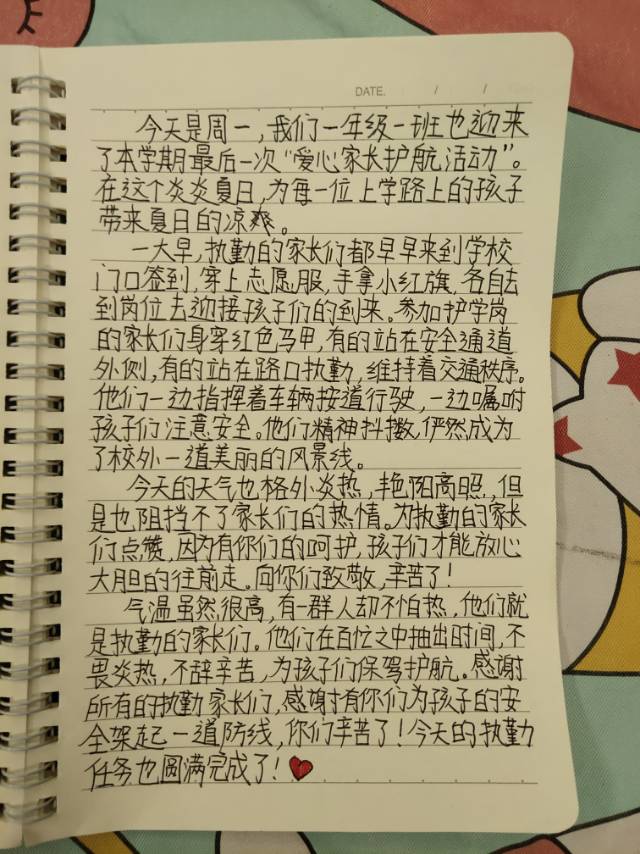 DATE. / /
今天是周一,我们一年级一班也迎来
了本学期最后一次“爱心家长护航活动”。
在这个炎炎夏日,为每一位上学路上的孩子
带来夏日的凉爽。
一大早,执勤的家长们都早早来到学校
门口签到,穿上志愿服,手拿小红旗,各自去
到岗位去迎接孩子们的到来。参加护学岗
的家长们身穿红色马甲,有的站在安全通道
外侧,有的站在路口执勤,维持着交通秩序。
他们一边指挥着车辆按道行驶,一边嘱咐
孩子们注意安全。他们精神抖擞,俨然成为
了校外一道美丽的风景线。
今天的天气也格外炎热,艳阳高照,但
是也阻挡不了家长们的热情。为执勤的家长
们点赞,因为有你们的呵护,孩子们才能放心
大胆的往前走。向你们致敬,辛苦了!
气温虽然很高,有一群人却不怕热,他们就
是执勤的家长们。他们在百忙之中抽出时间,不
畏炎热,不辞辛苦,为孩子们保驾护航。感谢
所有的执勤家长们,感谢有你们为孩子的安
全架起一道防线,你们辛苦了!今天的执勤
任务也圆满完成了!